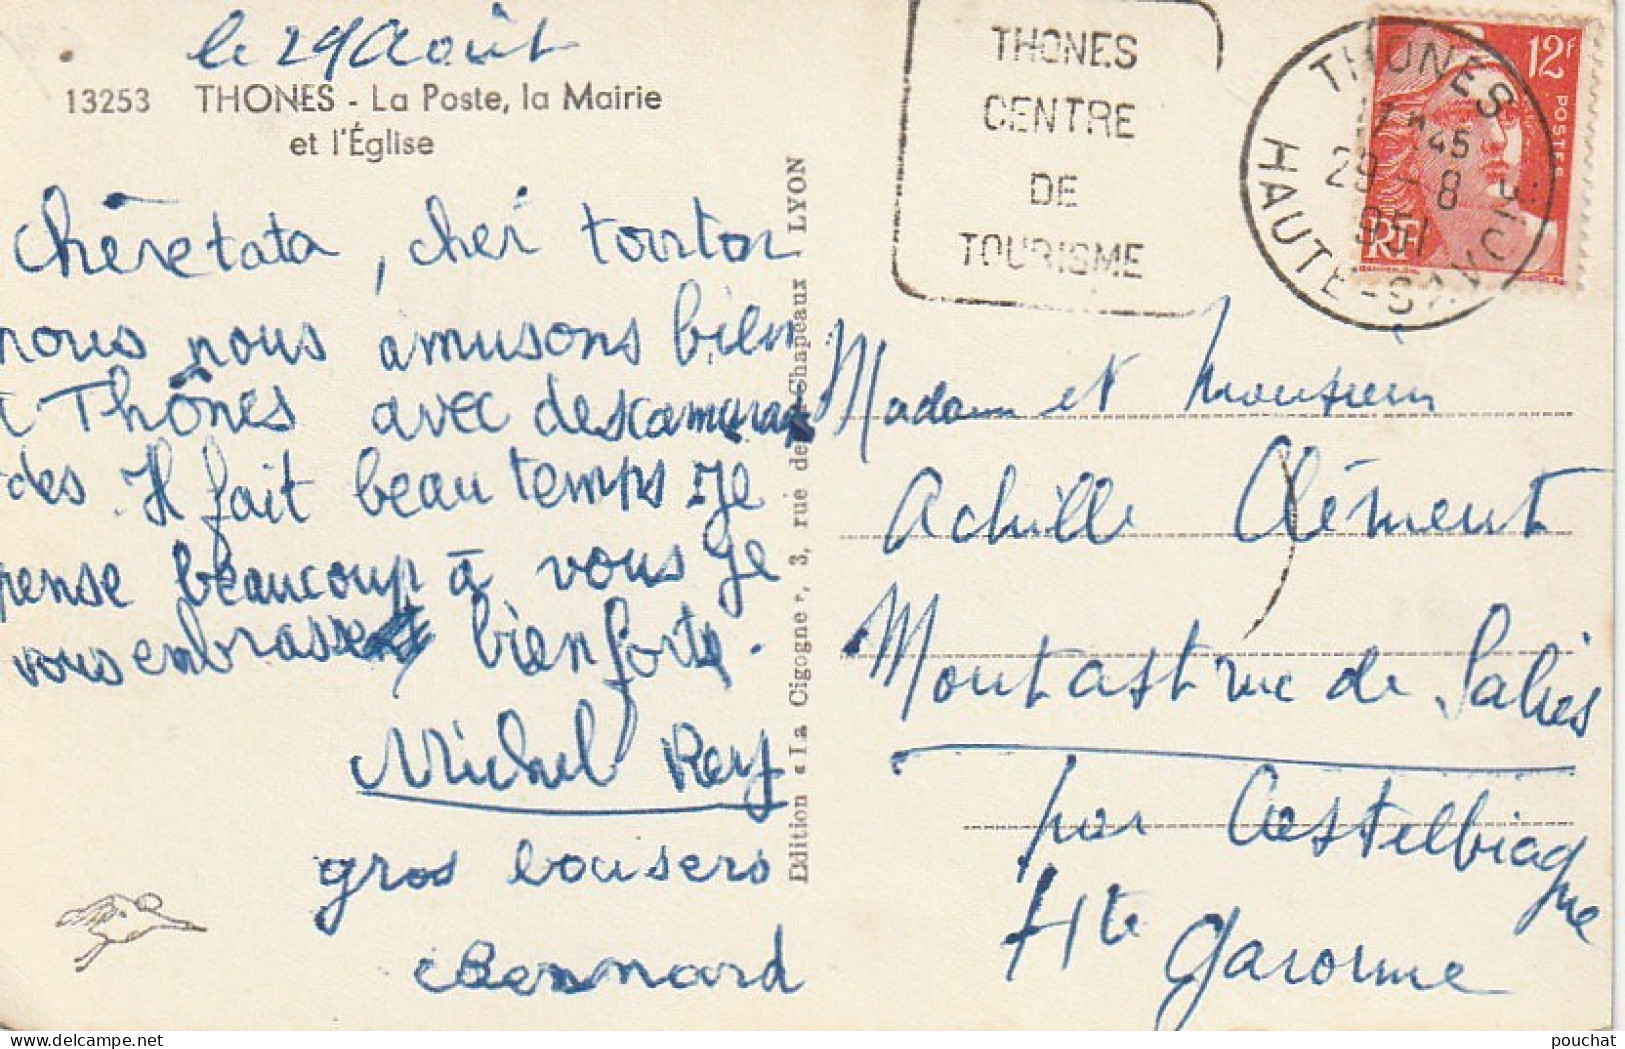 le 29 Août
13253 THONES - La Poste, la Mairie
et l'Église
Chère tata, cher tonton
nous nous amusons bien
à Thônes avec des camara
des. Il fait beau temps. Je
pense beaucoup à vous Je
vous embrasse bien forts.
Michel Rey
gros baisers
Bernard
Edition « La Cigogne », 3, rue des Chapeaux - LYON
THONES
CENTRE
DE
TOURISME
THONES
45
29 - 8
1951
HAUTE-SAVOIE
12F
POSTES
RF
Madame et Monsieur
Achille Clément
Montastruc de Salies
par Castelbiague
Hte Garonne
pouchat